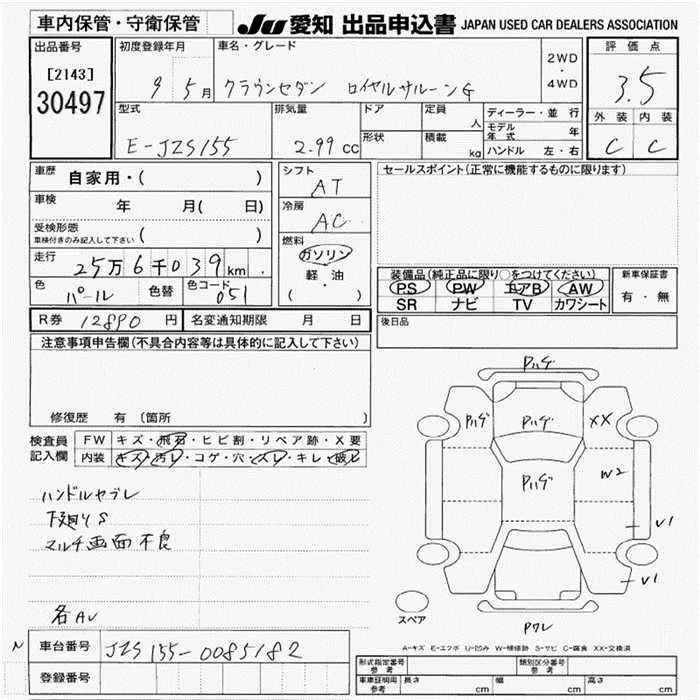 車内保管・守衛保管 JU 愛知 出品申込書 JAPAN USED CAR DEALERS ASSOCIATION
出品番号 初度登録年月 車名・グレード 評価点
[2143] 9 5月 クラウンセダン ロイヤルサルーンG 2WD・4WD 3.5
30497
型式 排気量 ドア 定員 人 ディーラー・並行 外装 内装
E-JZS155 2.99cc 形状 積載 kg モデル年式 年 C C
ハンドル 左・右
車歴 自家用・( ) シフト AT セールスポイント(正常に機能するものに限ります)
車検 年 月( 日) 冷房 AC
受検形態 ( )
車検付きのみ記入して下さい
燃料 ガソリン 軽・油 ( )
走行 25万6千039km
装備品(純正品に限り○をつけてください) 新車保証書
PS PW エアB AW 有・無
SR ナビ TV カワシート
色 パール 色替 色コード 051
R券 12890円 名変通知期限 月 日 後日品
注意事項申告欄(不具合内容等は具体的に記入して下さい)
修復歴 有(箇所 )
検査員記入欄 FW キズ・飛石・ヒビ割・リペア跡・X要
内装 キズ・汚レ・コゲ・穴・スレ・キレ・破レ
ハンドルセブレ
下廻りS
マルチ画面不良
名AV
Pハゲ
Pハゲ Pハゲ XX
Pハゲ W2
V1
V1
スペア
Pワレ
A-キズ E-エクボ U-凹み W-補修跡 S-サビ C-腐食 XX-交換済
N 車台番号 JZS155-0085182
登録番号
形式指定番号 参考 類別区分番号 参考
車車証明用 参考 長さ cm 幅 cm 高さ cm